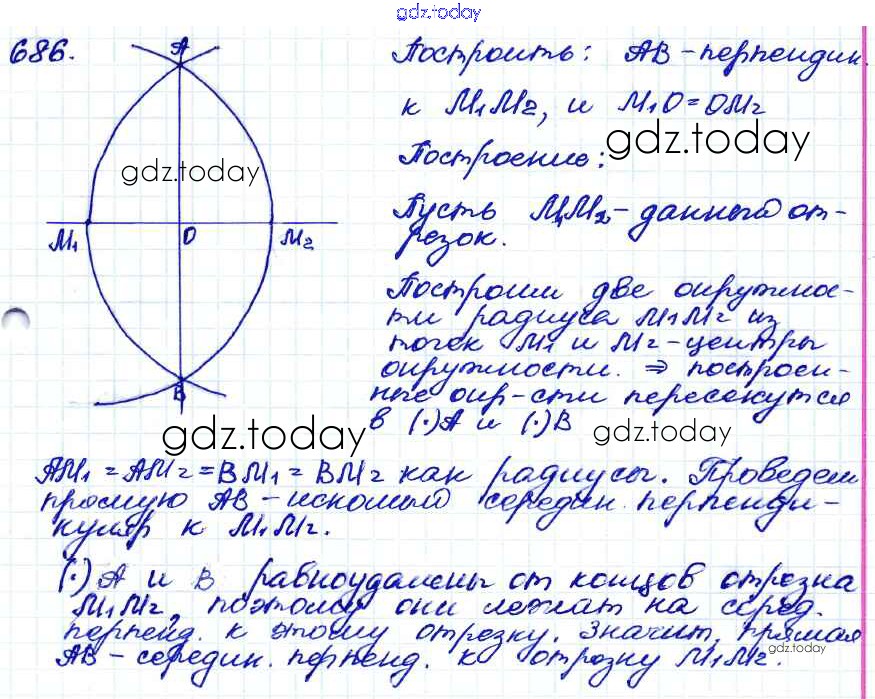 gdz.today
686.
A
M₁
O
M₂
B
Построить: AB – перпендик.
к M₁M₂, и M₁O = OM₂
gdz.today
Построение:
gdz.today
Пусть M₁M₂ – данный от-
резок.
Построим две окружнос-
ти радиуса M₁M₂ из
точек M₁ и M₂ – центры
окружности. ⇒ построен-
ные окр-сти пересекутся
в (·)A и (·)B
gdz.today
gdz.today
AM₁ = AM₂ = BM₁ = BM₂ как радиусы. Проведем
прямую AB – искомый середин. перпенди-
куляр к M₁M₂.
(·) A и B равноудалены от концов отрезка
M₁M₂, поэтому они лежат на серед.
перпенд. к этому отрезку. Значит, прямая
AB – середин. перпенд. к отрезку M₁M₂.
gdz.today